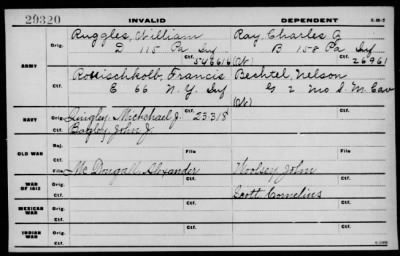 29320
INVALID
DEPENDENT
3-10-2
ARMY
Orig.
Ruggles, William
Ray, Charles G
D 115 Pa Inf
B 158 Pa Inf
Ctf.
546616 (N)
26961
Orig.
Rottischkolb, Francis
Bechtel, Nelson
E 66 N.Y. Inf
G 2 Mo S. M. Cav
Ctf.
(N)
NAVY
Orig.
Quigley, Mickchael J. 23.318
Ctf.
Bagley, John J.
OLD WAR
Orig.
Ctf.
File
File
WAR OF 1812
Orig.
Mc Dougall, Alexander
Woolsey, John
Ctf.
Scott, Cornelius
MEXICAN WAR
Orig.
Ctf.
INDIAN WAR
Orig.
Ctf.